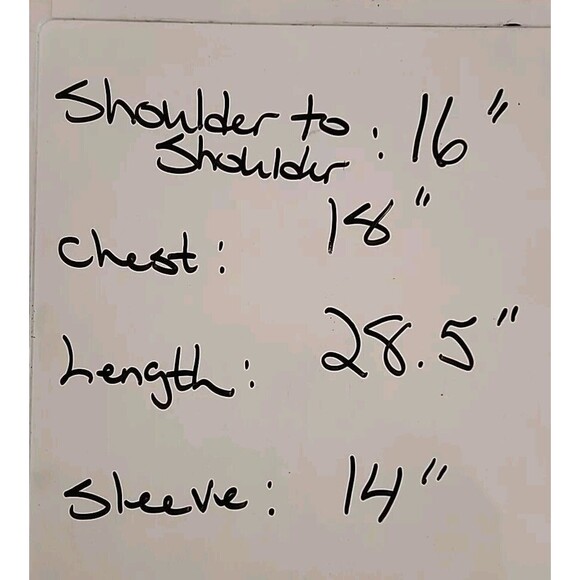 Shoulder to : 16"
Shoulder
Chest: 18"
Length: 28.5"
Sleeve: 14"